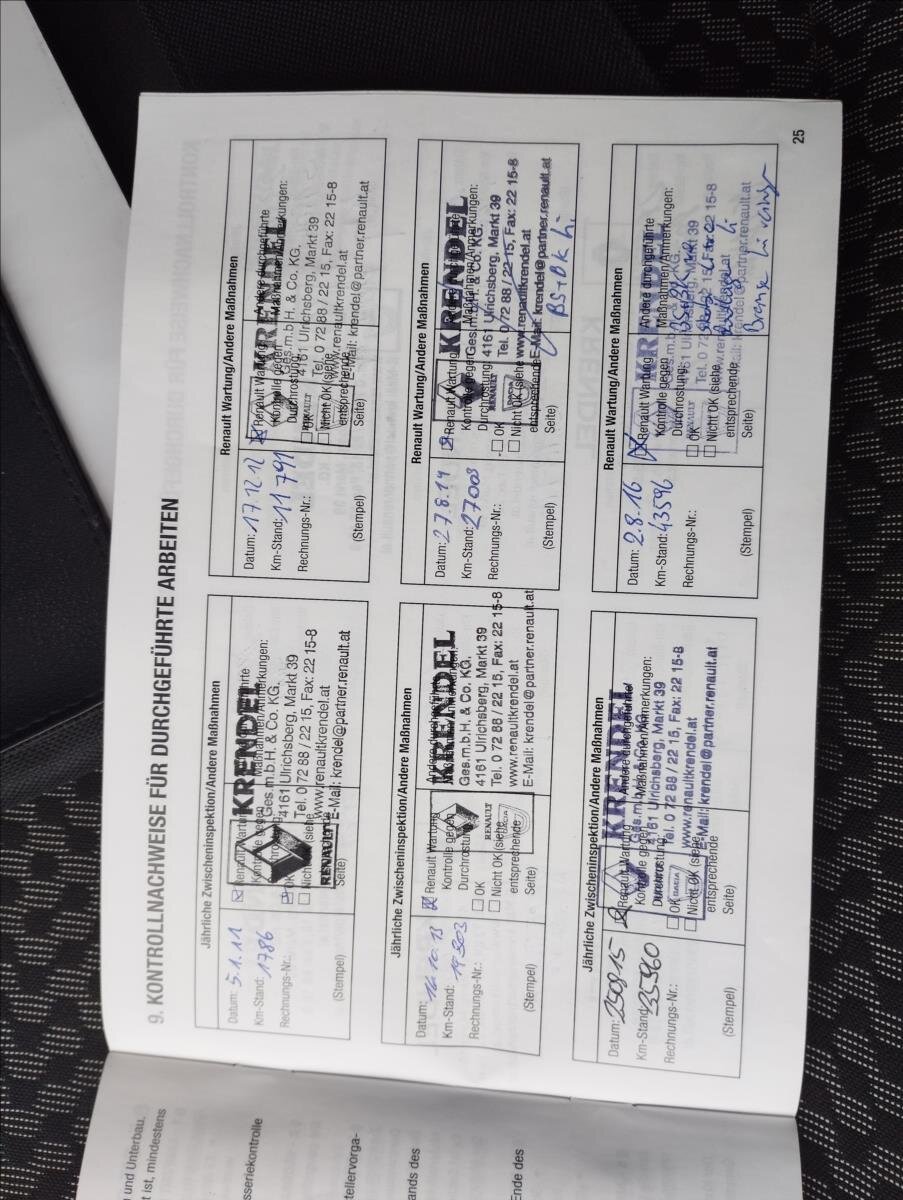 9. KONTROLLNACHWEISE FÜR DURCHGEFÜHRTE ARBEITEN
Jährliche Zwischeninspektion/Andere Maßnahmen
Datum: 5.1.11
Km-Stand: 1786
Rechnungs-Nr.:
(Stempel)
Renault Wartung
Kontrolle gegen
OK
Nicht OK (siehe
Seite)
Maßnahmen/Anmerkungen:
KRENDEL
Ges.m.b.H. & Co. KG.
4161 Ulrichsberg, Markt 39
Tel. 0 72 88 / 22 15, Fax: 22 15-8
www.renaultkrendel.at
E-Mail: krendel@partner.renault.at
RENAULT
Renault Wartung/Andere Maßnahmen
Datum: 17.12.12
Km-Stand: 11 791
Rechnungs-Nr.:
(Stempel)
Renault Wartung
Kontrolle gegen
Durchrostung:
OK
Nicht OK (siehe
entsprechende
Seite)
Andere durchgeführte
Maßnahmen/Anmerkungen:
KRENDEL
Ges.m.b.H. & Co. KG.
4161 Ulrichsberg, Markt 39
Tel. 0 72 88 / 22 15, Fax: 22 15-8
www.renaultkrendel.at
E-Mail: krendel@partner.renault.at
RENAULT
Jährliche Zwischeninspektion/Andere Maßnahmen
Datum: 10.13
Km-Stand: 19 303
Rechnungs-Nr.:
(Stempel)
Renault Wartung
Kontrolle gegen
Durchrostung
OK
Nicht OK (siehe
entsprechende
Seite)
KRENDEL
Ges.m.b.H. & Co. KG.
4161 Ulrichsberg, Markt 39
Tel. 0 72 88 / 22 15, Fax: 22 15-8
www.renaultkrendel.at
E-Mail: krendel@partner.renault.at
RENAULT
DACIA
Renault Wartung/Andere Maßnahmen
Datum: 27.8.14
Km-Stand: 27003
Rechnungs-Nr.:
(Stempel)
Renault Wartung
Kontrolle gegen
Durchrostung
OK
Nicht OK (siehe
entsprechende
Seite)
Maßnahmen/Anmerkungen:
KRENDEL
Ges.m.b.H. & Co. KG.
4161 Ulrichsberg, Markt 39
Tel. 0 72 88 / 22 15, Fax: 22 15-8
www.renaultkrendel.at
E-Mail: krendel@partner.renault.at
RENAULT
BS+BK
Jährliche Zwischeninspektion/Andere Maßnahmen
Datum: 250915
Km-Stand: 35960
Rechnungs-Nr.:
(Stempel)
Renault Wartung
Kontrolle gegen
Durchrostung:
OK
Nicht OK (siehe
entsprechende
Seite)
Andere durchgeführte
Maßnahmen/Anmerkungen:
KRENDEL
4161 Ulrichsberg, Markt 39
Tel. 0 72 88 / 22 15, Fax: 22 15-8
www.renaultkrendel.at
E-Mail: krendel@partner.renault.at
DACIA
Renault Wartung/Andere Maßnahmen
Datum: 2.8.16
Km-Stand: 43596
Rechnungs-Nr.:
(Stempel)
Renault Wartung
Kontrolle gegen
Durchrostung:
OK
Nicht OK (siehe
entsprechende
Seite)
Andere durchgeführte
Maßnahmen/Anmerkungen:
Bremse
25
und Unterbau.
ist, mindestens